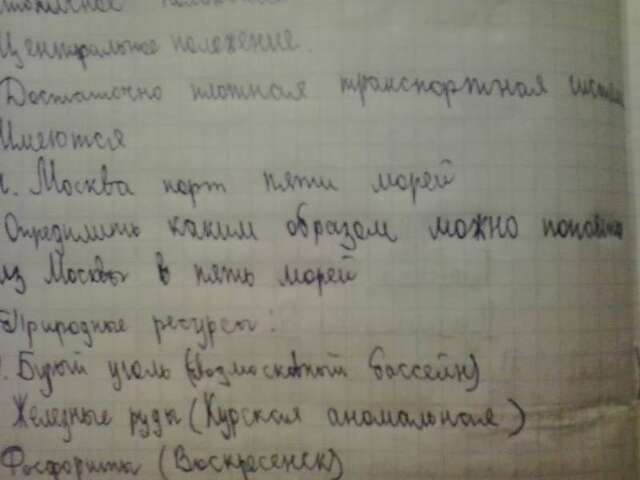 Центральное положение.
Достаточно плотная транспортная
Имеются
1. Москва порт пяти морей
Определить каким образом можно попасть
из Москвы в пять морей
Б) Природные ресурсы:
1. Бурый уголь (Подмосковный бассейн)
Железные руды (Курская аномальная)
Фосфориты (Воскресенск)